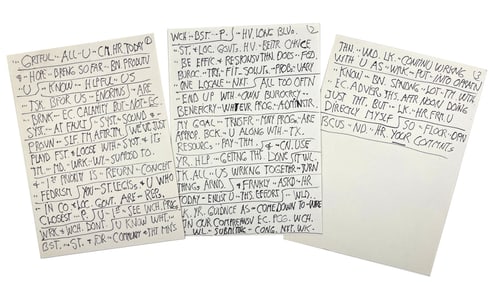 GRTFUL - ALL - U - CM. HR. TODAY
& HOPE - BRENG SO FAR - BN PRODUTV
U - KNOW - HLPFUL US
TSK BFOR US ENORMUS - ARE
BRNK - EC CALAMITY BUT - NOT - EC.
SYST. - AT FAULT SYST. SOUND &
PROWN - SLF TM. AFTR TM. WE'VE JUST
PLAYD FST & LOOSE WITH SYST & ITS
TM. - MD. - WRK - WL - SUPPOSD TO.
1ST PRIORITY IS - RETURN - CONCEPT
FEDRLISM YOU - ST. LEGISL. & U WHO
IN CO & LOC GOVT. ARE - REP.
CLOSEST - P. U - SEE WCH. PRG.
WRK & WCH. DONT U KNOW WHT.
BST. - ST. & FOR - COMMUNITY & THT MNS
2
WCH - BST. - P. HV. LONG BLVD.
ST. & LOC. GOVTS. HV - BETTR CHNCE
BE EFFIC. & RESPONSV THN DOES - FED.
BUROC. - TRY - FIT. SOLUT. - PROBS. VARY
ONE LOCALE - NXT. ALL TOO OFTEN
END UP WITH - OWN BUROCRACY -
BENEFICIARY WHTEVR PROG. - ADMINSTR.
MY GOAL - TRNSFER - MAY PROG. ARE
APPROP. BCK - U ALONG WITH - TX.
RESOURCS. - PAY - THM & - CN. USE
YR. HLP - GETTING THS DONE IF WL.
TK. ALL - US WRKNG TOGETHER - TURN
THNGS ARND. & FRANKLY - ASKD - HR
TODAY - ENLIST U - THS EFFORT - WLD.
LK. YR. GUIDNCE AS - COME DOWN TO - WIRE
ON OUR COMPREHENSV EC. PCG. WCH.
WL - SUBMITTNG - CONG. NXT. WK.
THN. - WLD. LK. - CONTINU WRKNG
WITH U AS - WRK - PUT - INTO OPERATN
KNOW - BN. SPNDNG - LOT - TM. WITH
EC. ADVSRS THS AFTRNOON DOING
JUST THT. BUT - LK. HR. FRM U
DIRECTLY MYSELF SO - FLOOR - OPEN
BCUS - ND - HR YOUR COMMENTS.